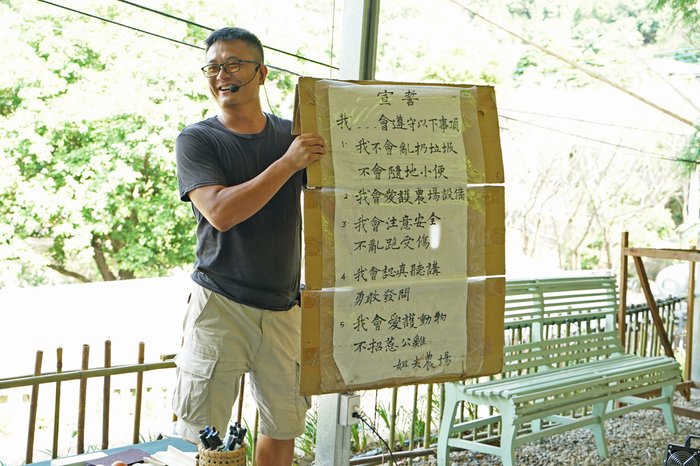 宣誓
我...會遵守以下事項
1. 我不會亂扔垃圾
不會隨地小便
2. 我會愛護農場設備
3. 我會注意安全
不亂跑受傷
4. 我會認真聽講
勇敢發問
5. 我會愛護動物
不招惹公雞
姐夫農場